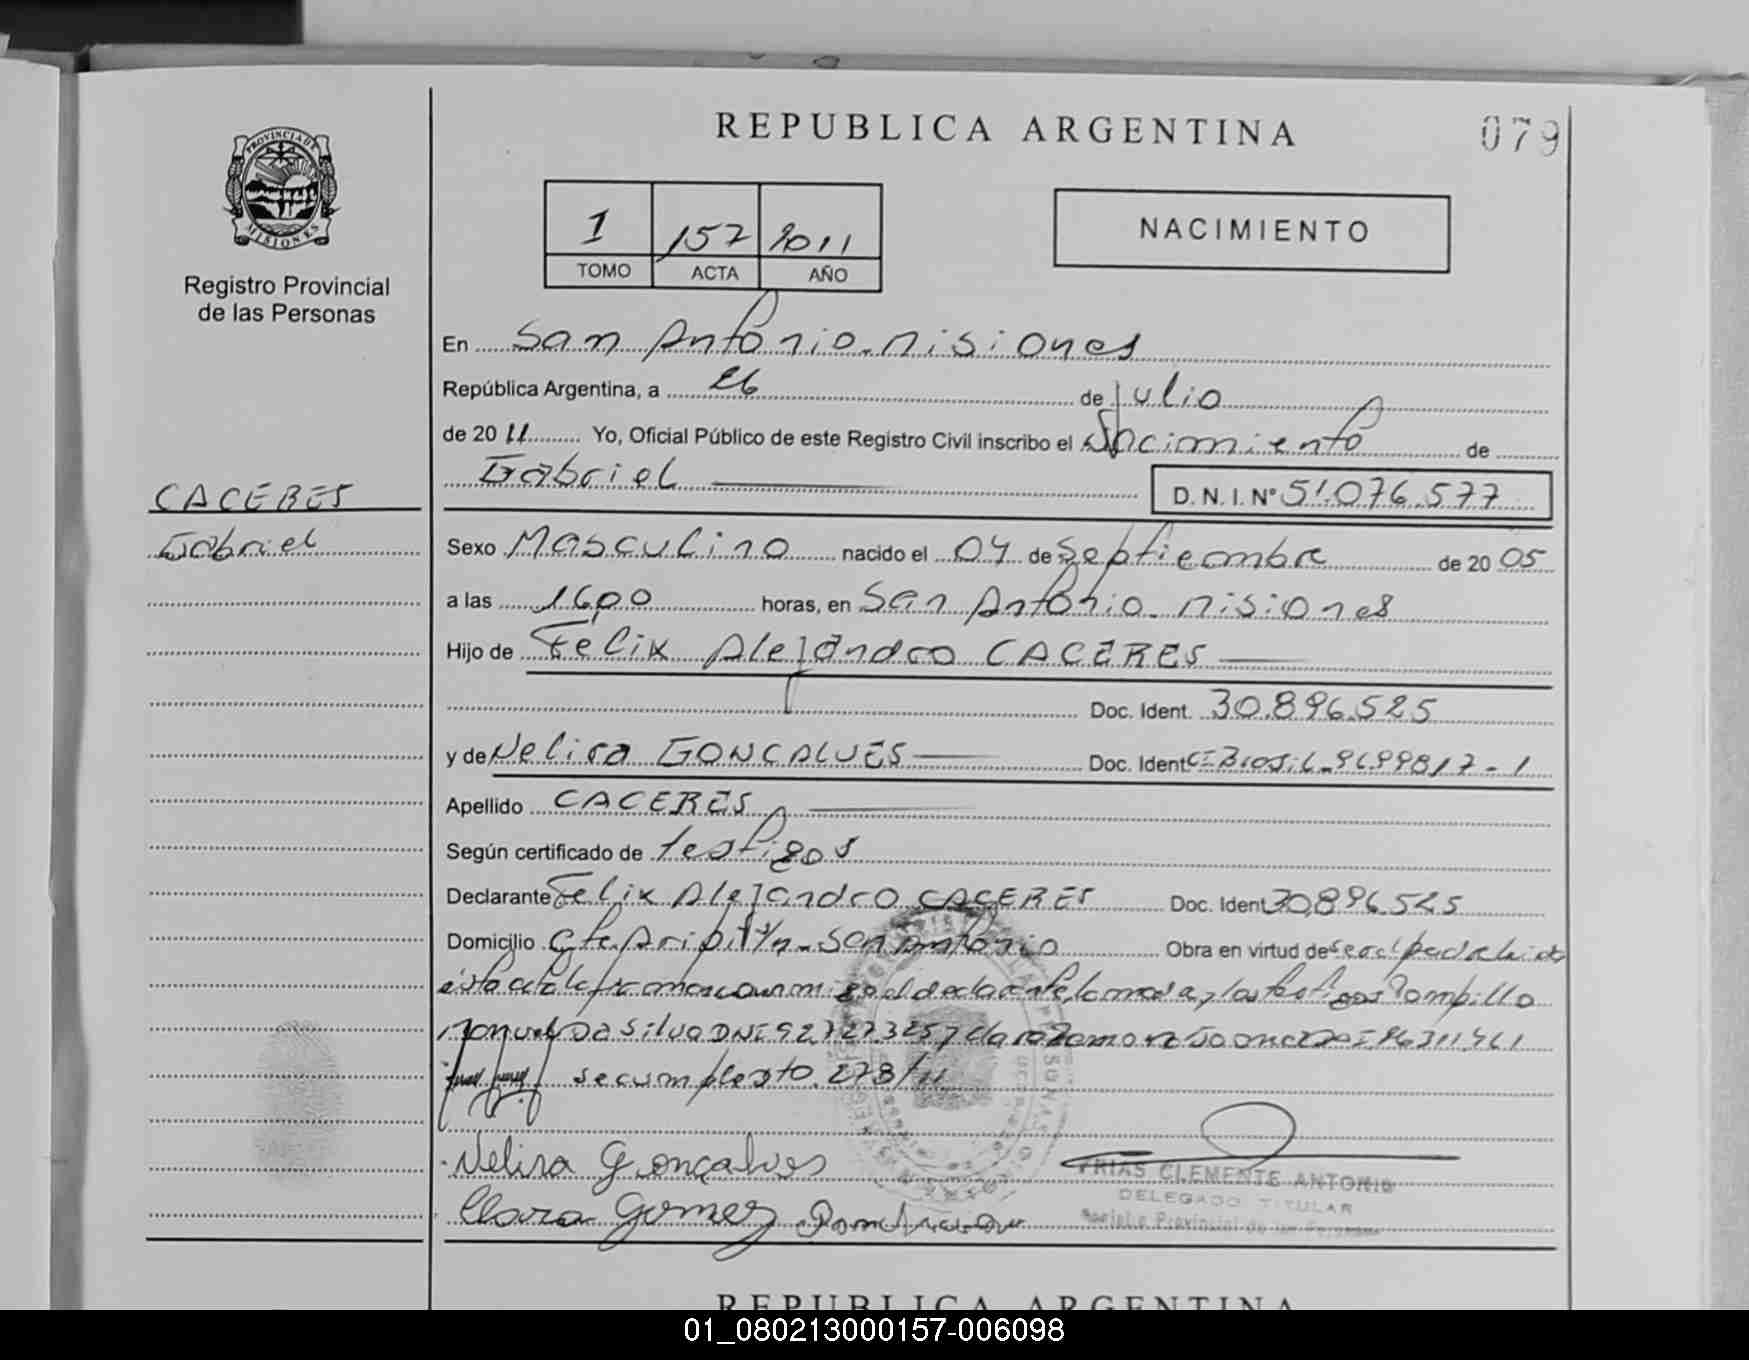 REPUBLICA ARGENTINA
079
PROVINCIA DE
MISIONES
Registro Provincial
de las Personas
1 157 2011
TOMO ACTA AÑO
NACIMIENTO
En San Antonio - Misiones
República Argentina, a 26 de Julio
de 20 11 Yo, Oficial Público de este Registro Civil inscribo el Nacimiento de
Gabriel
D. N. I. Nº 51.076.577
CACERES
Gabriel
Sexo Masculino nacido el 04 de Septiembre de 20 05
a las 16,00 horas, en San Antonio - Misiones
Hijo de Felix Alejandro CACERES
Doc. Ident. 30.896.525
y de Nelisa GONCALVES Doc. Ident CI Brasil
Apellido CACERES
Según certificado de testigos
Declarante Felix Alejandro CACERES Doc. Ident 30.896.525
Domicilio S/n - San Antonio Obra en virtud de
esta acta la firman conmigo el declarante, la madre, y los testigos Pompillo
Manuel Da Silva DNI 92.727.325 y Clara
se cumple 278/11
Nelisa Gonçalves
Clara Gomez
FRIAS CLEMENTE ANTONIO
DELEGADO TITULAR
Registro Provincial de las Personas
REPUBLICA ARGENTINA
01_080213000157-006098